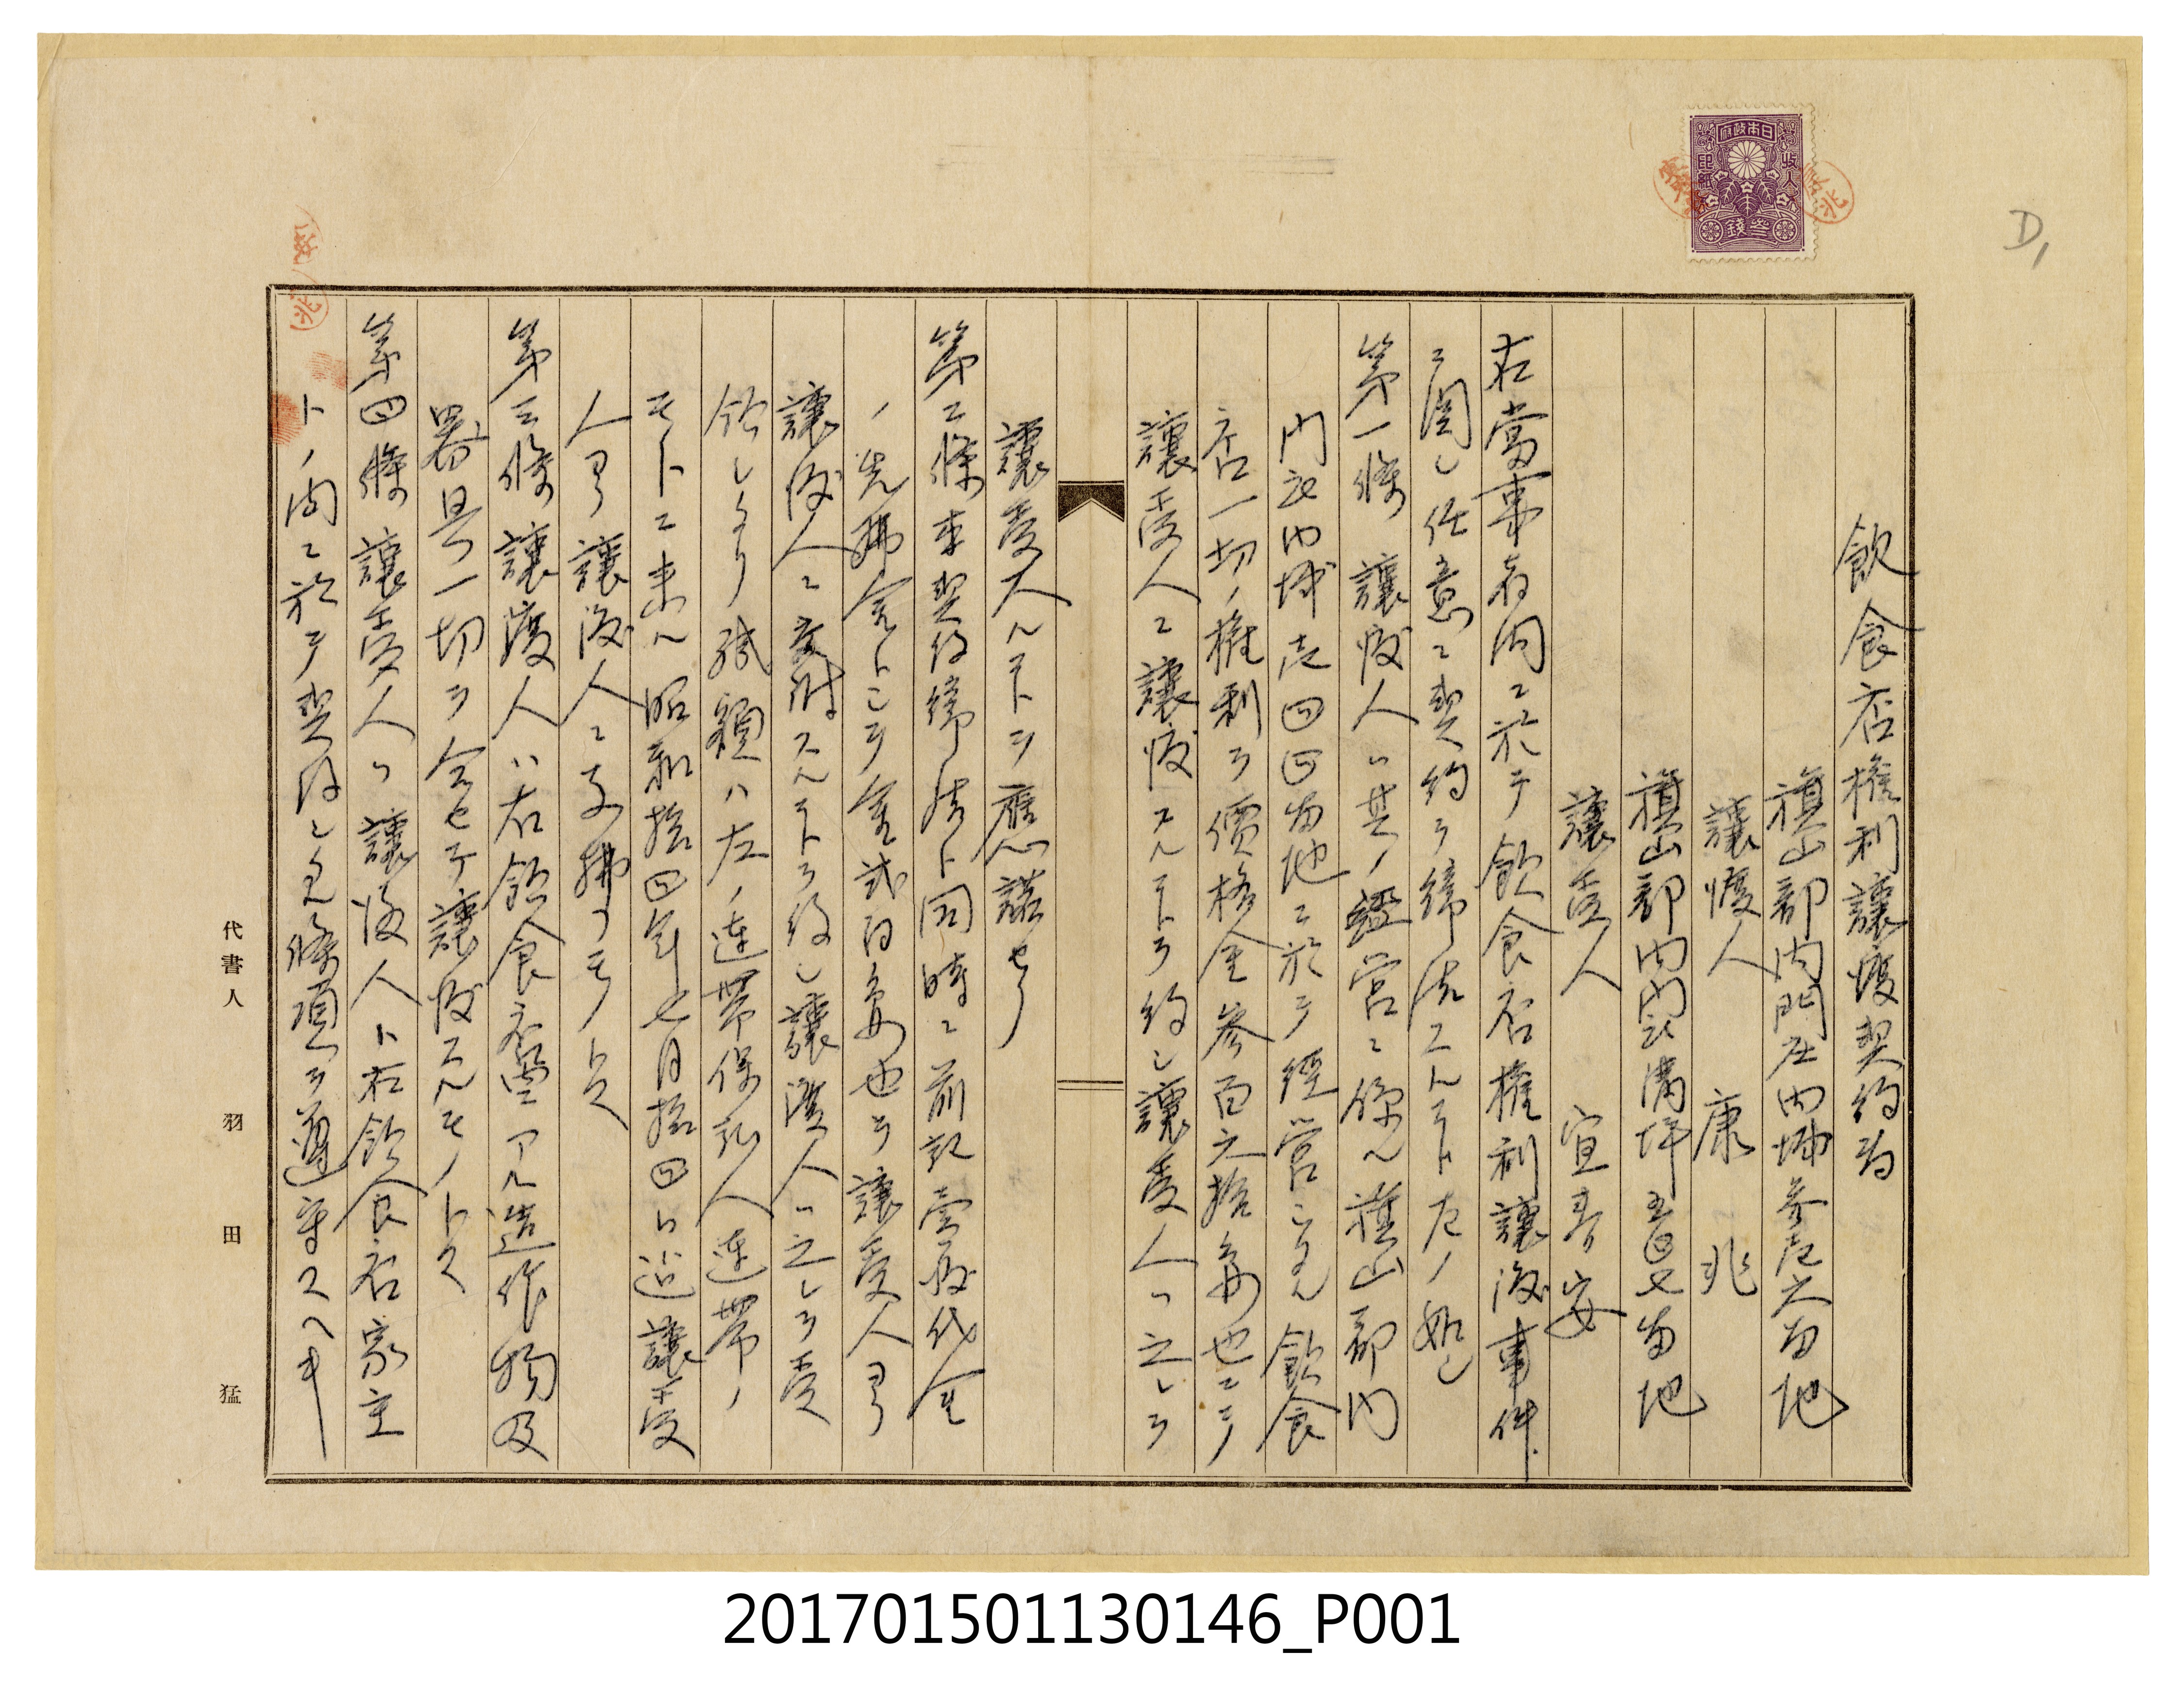 日本政府
收入
印紙
參錢
D1
飲食店權利讓渡契約書
旗山郡內門庄內埔參百六番地
讓渡人 康 兆
旗山郡內門庄溝坪五百七番地
讓受人 宜壽安
右當事者間ニ於テ飲食店權利讓渡事件
ニ関シ任意ニ契約ヲ締結スルコト左ノ如シ
第一條 讓渡人ハ其ノ經營ニ係ル旗山郡內
門庄內埔 四四番地ニ於テ經營シタル飲食
店一切ノ權利ヲ價格金參百六拾圓也ニテ
讓受人ニ讓渡スルコトヲ約シ讓受人ハ之レヲ
讓受クルコトヲ應諾セリ
第二條 本契約締結ト同時ニ前記賣渡代金
ノ先拂金トシテ金貳百圓也ヲ讓受人ヨリ
讓渡人ニ交付スルコトヲ約シ讓渡人ハ之レヲ受
領シタリ残額ハ左ノ連帶保証人連帶ノ
モトニ來ル昭和拾四年七月拾四日迄讓受
人ヨリ讓渡人ニ支拂フモノトス
第三條 讓渡人ハ右飲食店ニアル造作物及
器具一切ヲ含セテ讓渡スルモノトス
第四條 讓受人ハ讓渡人ト右飲食店家主
トノ間ニ於テ契約シタル條項ヲ遵守スヘキ
代書人 羽田猛
201701501130146_P001